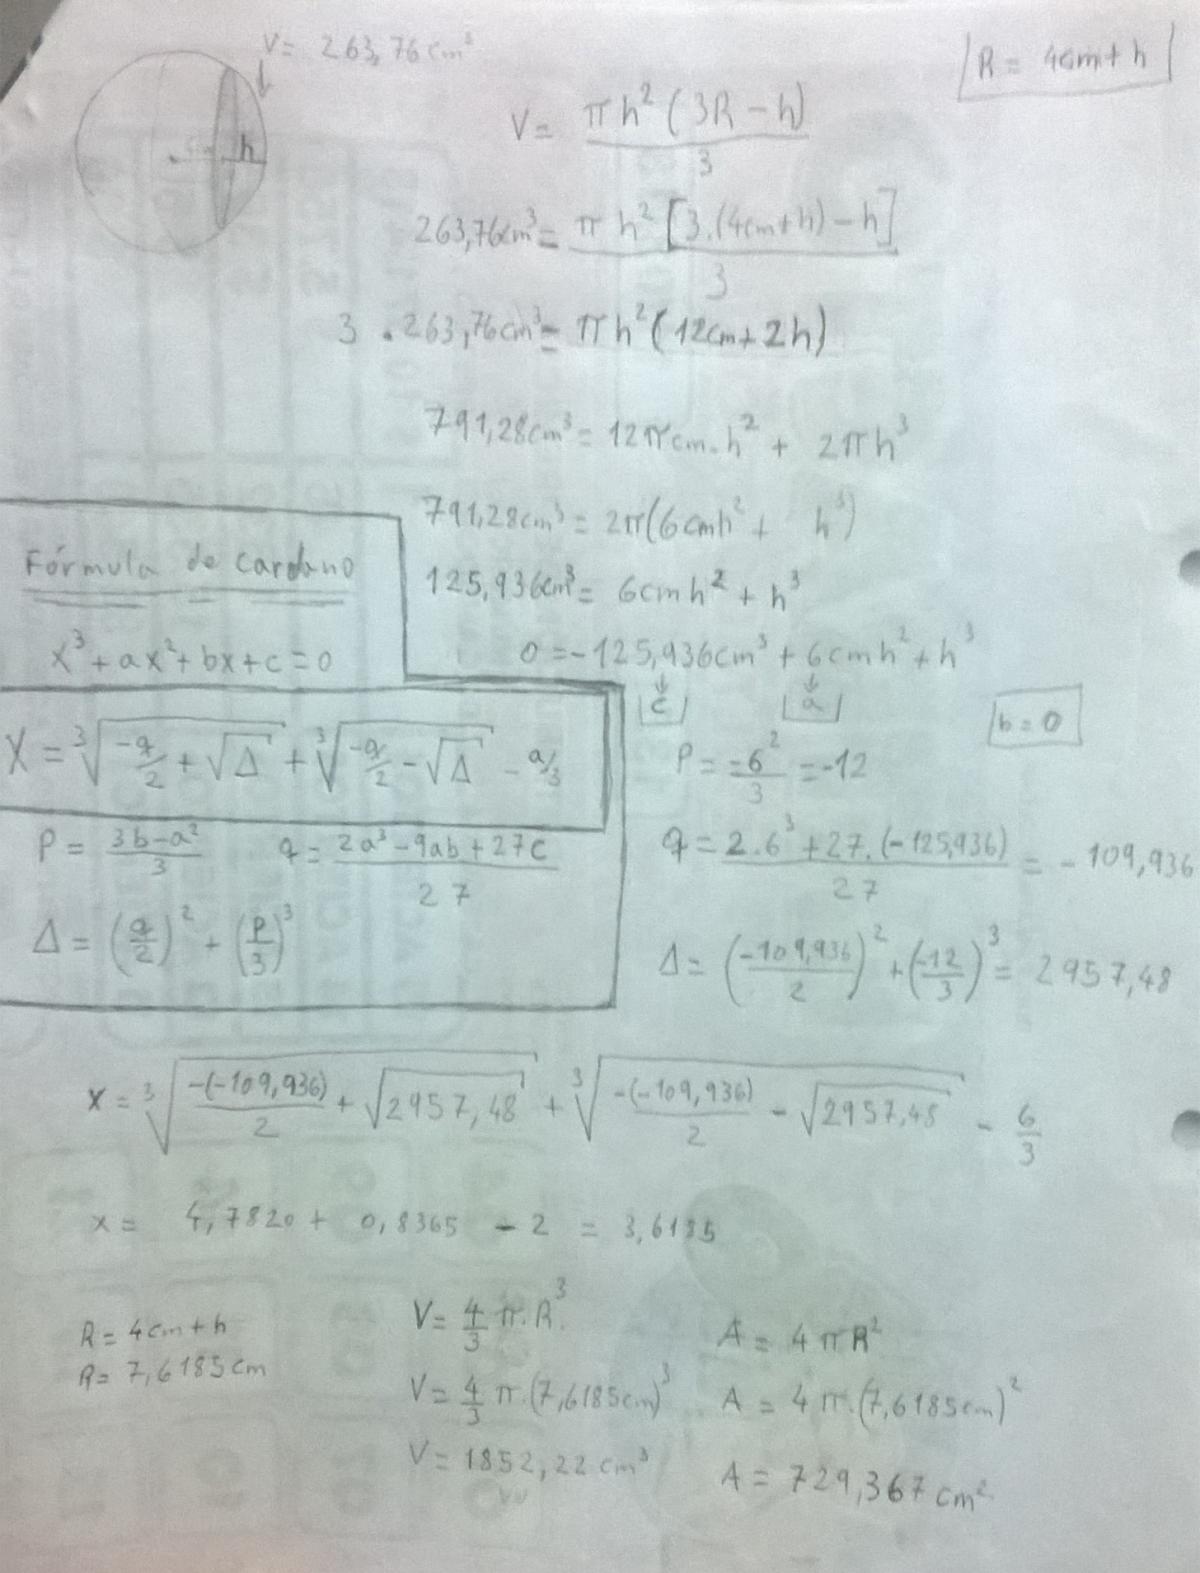 V = 263,76 cm³
R = 4cm + h
h
V = πh²(3R - h) / 3
263,76cm³ = πh²[3.(4cm+h) - h] / 3
3 . 263,76cm³ = πh²(12cm + 2h)
791,28cm³ = 12πcm.h² + 2πh³
791,28cm³ = 2π(6cmh² + h³)
125,936cm³ = 6cmh² + h³
0 = -125,936cm³ + 6cmh² + h³
c a
b = 0
Fórmula de Cardano
x³ + ax² + bx + c = 0
X = ∛(-q/2 + √Δ) + ∛(-q/2 - √Δ) - a/3
P = (3b - a²)/3 q = (2a³ - 9ab + 27c)/27
Δ = (q/2)² + (P/3)³
P = -6²/3 = -12
q = (2.6³ + 27.(-125,936))/27 = -109,936
Δ = (-109,936/2)² + (-12/3)³ = 2957,48
x = ∛(-(-109,936)/2 + √2957,48) + ∛(-(-109,936)/2 - √2957,48) - 6/3
x = 4,7820 + 0,8365 - 2 = 3,6185
R = 4cm + h
R = 7,6185cm
V = 4/3 π.R³
V = 4/3 π.(7,6185cm)³
V = 1852,22 cm³
A = 4πR²
A = 4π.(7,6185cm)²
A = 729,367 cm²